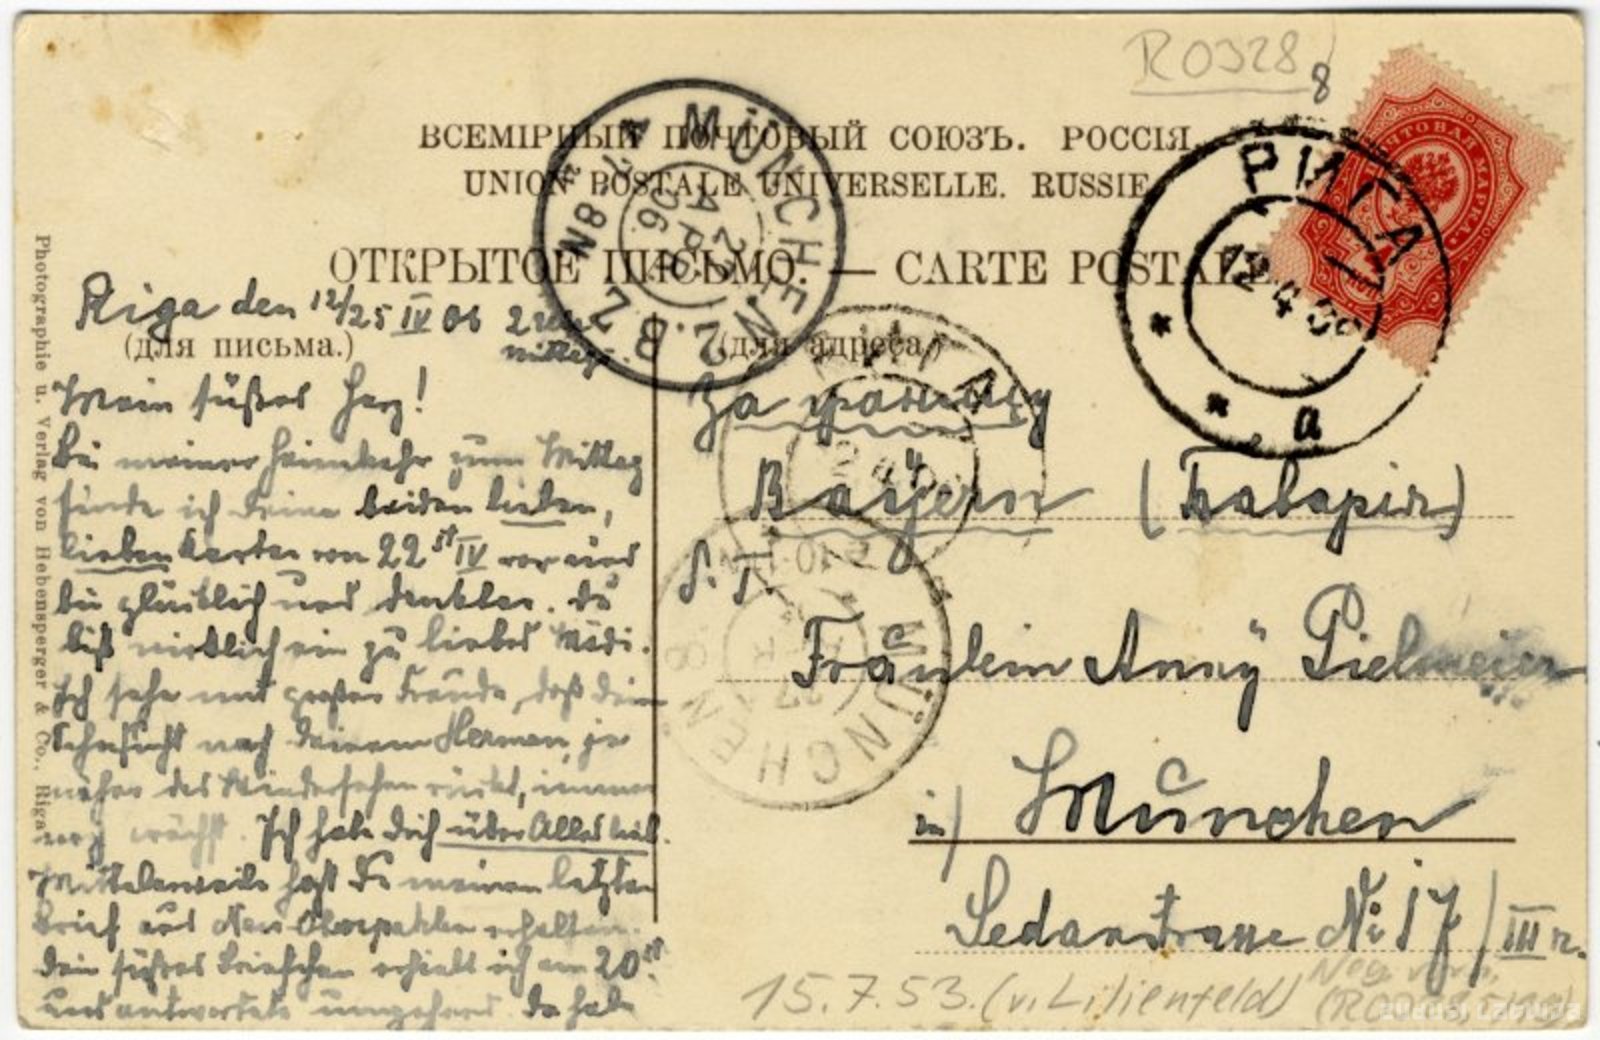 R0328
8
ВСЕМІРНЫЙ ПОЧТОВЫЙ СОЮЗЪ. РОССІЯ.
UNION POSTALE UNIVERSELLE. RUSSIE
ОТКРЫТОЕ ПИСЬМО. — CARTE POSTALE
ПОЧТОВАЯ МАРКА
РИГА
12 4 06
a
MÜNCHEN 2 B.Z.
27 APR 06
8 N
Riga den 12/25 IV 06 2
(для письма.)
(для адреса.)
Mein süßes Herz!
Bei meiner Heimkehr zum Mittag
finde ich Deine beiden lieben,
lieben Karten von 22st IV vor und
bin glücklich und dankbar. Du
bist wirklich ein zu liebes Mädi.
Ich sehe mit großer Freude, daß Deine
Sehnsucht nach Deinem Herman, je
näher das Wiedersehen rückt, immer
noch wächst. Ich habe Dich über Alles lieb.
Mittelerweile hast Du meinen letzten
Brief aus Neu Oberpahlen erhalten.
Dein süßes Briefchen erhielt ich am 20st
und antwortete umgehend. Da habe
Заграницу
Bayern (Баварія)
S. T.
Fräulein Anny Pielmeier
in) München
Sedanstrasse № 17/III r.
MÜNCHEN
15.7.53. (v. Lilienfeld)
Photographie u. Verlag von Hebensperger & Co., Riga